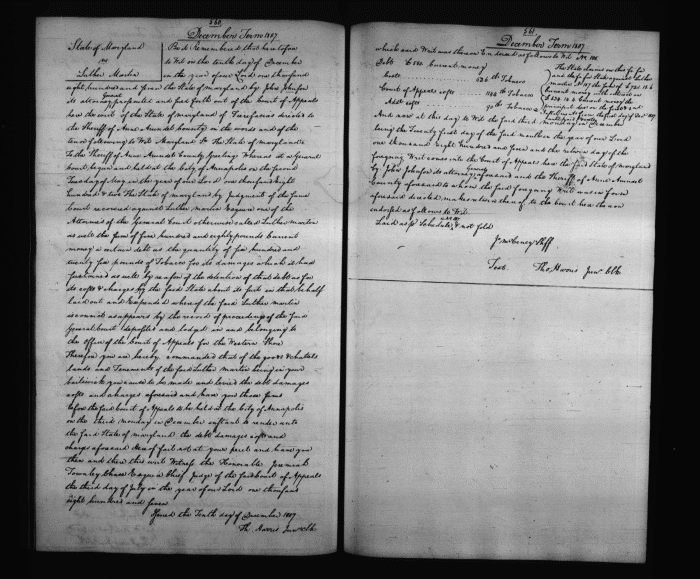 560
December Term 1807
State of Maryland
vs
Luther Martin
Be it Remembered that heretofore
to Wit on the tenth day of December
in the year of our Lord one thousand
eight hundred and seven the State of Maryland by John Johnson
its attorney General prosecuted and sued forth out of the Court of Appeals
here the writ of the State of Maryland of Fierifacias directed to
the Sheriff of Anne Arundel County in the words and of the
tenor following to Wit Maryland Sc The State of Maryland to
To the Sheriff of Anne Arundel County Greeting Whereas at a General
Court begun and held at the City of Annapolis on the second
Tuesday of May in the year of our Lord one thousand eight
hundred The State of Maryland by Judgment of the same
Court recovered against Luther Martin Esquire one of the
Attornies of the General Court otherwise called Luther Martin
as well the sum of five hundred and eighty pounds Current
money a certain debt as the quantity of five hundred and
twenty six pounds of Tobacco for its damages which it had
sustained as well by reason of the detention of that debt as for
its costs & charges by the said State about its suit in that behalf
laid out and expended whereof the said Luther Martin
is convict as appears by the record of proceedings of the said
General Court deposited and lodged in and belonging to
the office of the Court of Appeals for the Western Shore
Therefore you are hereby commanded that of the goods & chattels
lands and Tenements of the said Luther Martin being in your
bailiwick you cause to be made and levied the debt damages
costs and charges aforesaid and have you those sums
before the said Court of Appeals to be held at the City of Annapolis
on the third monday in December instant to render unto
the said State of Maryland the debt damages costs and
charges aforesaid Hereof fail not at your peril and have you
then and there this writ Witness the Honorable Jeremiah
Townley Chase Esquire Chief Judge of the said Court of Appeals
the third day of July in the year of our Lord one thousand
eight hundred and seven
Issued the Tenth day of December 1807
Th. Harris Junr Clk
561
December Term 1807
which said Writ was thereon Endorsed as follows to Wit No 188
Debt £580 Current money
Costs 526 lb Tobacco
Court of Appeals costs
Addl costs
And now at this day to Wit the said third monday in December
being the Twenty first day of the said month in the year of our Lord
one thousand eight hundred and seven and the return day of the
foregoing Writ comes into the Court of Appeals here the said State of Maryland
by John Johnson its attorney General aforesaid and the Sheriff of Anne Arundel
County aforesaid to whom the said foregoing Writ was in form
aforesaid directed makes return thereof to the Court here thereon
endorsed as follows to Wit
Laid as pr Schedule, & not sold
Test. Tho. Harris Junr Clk